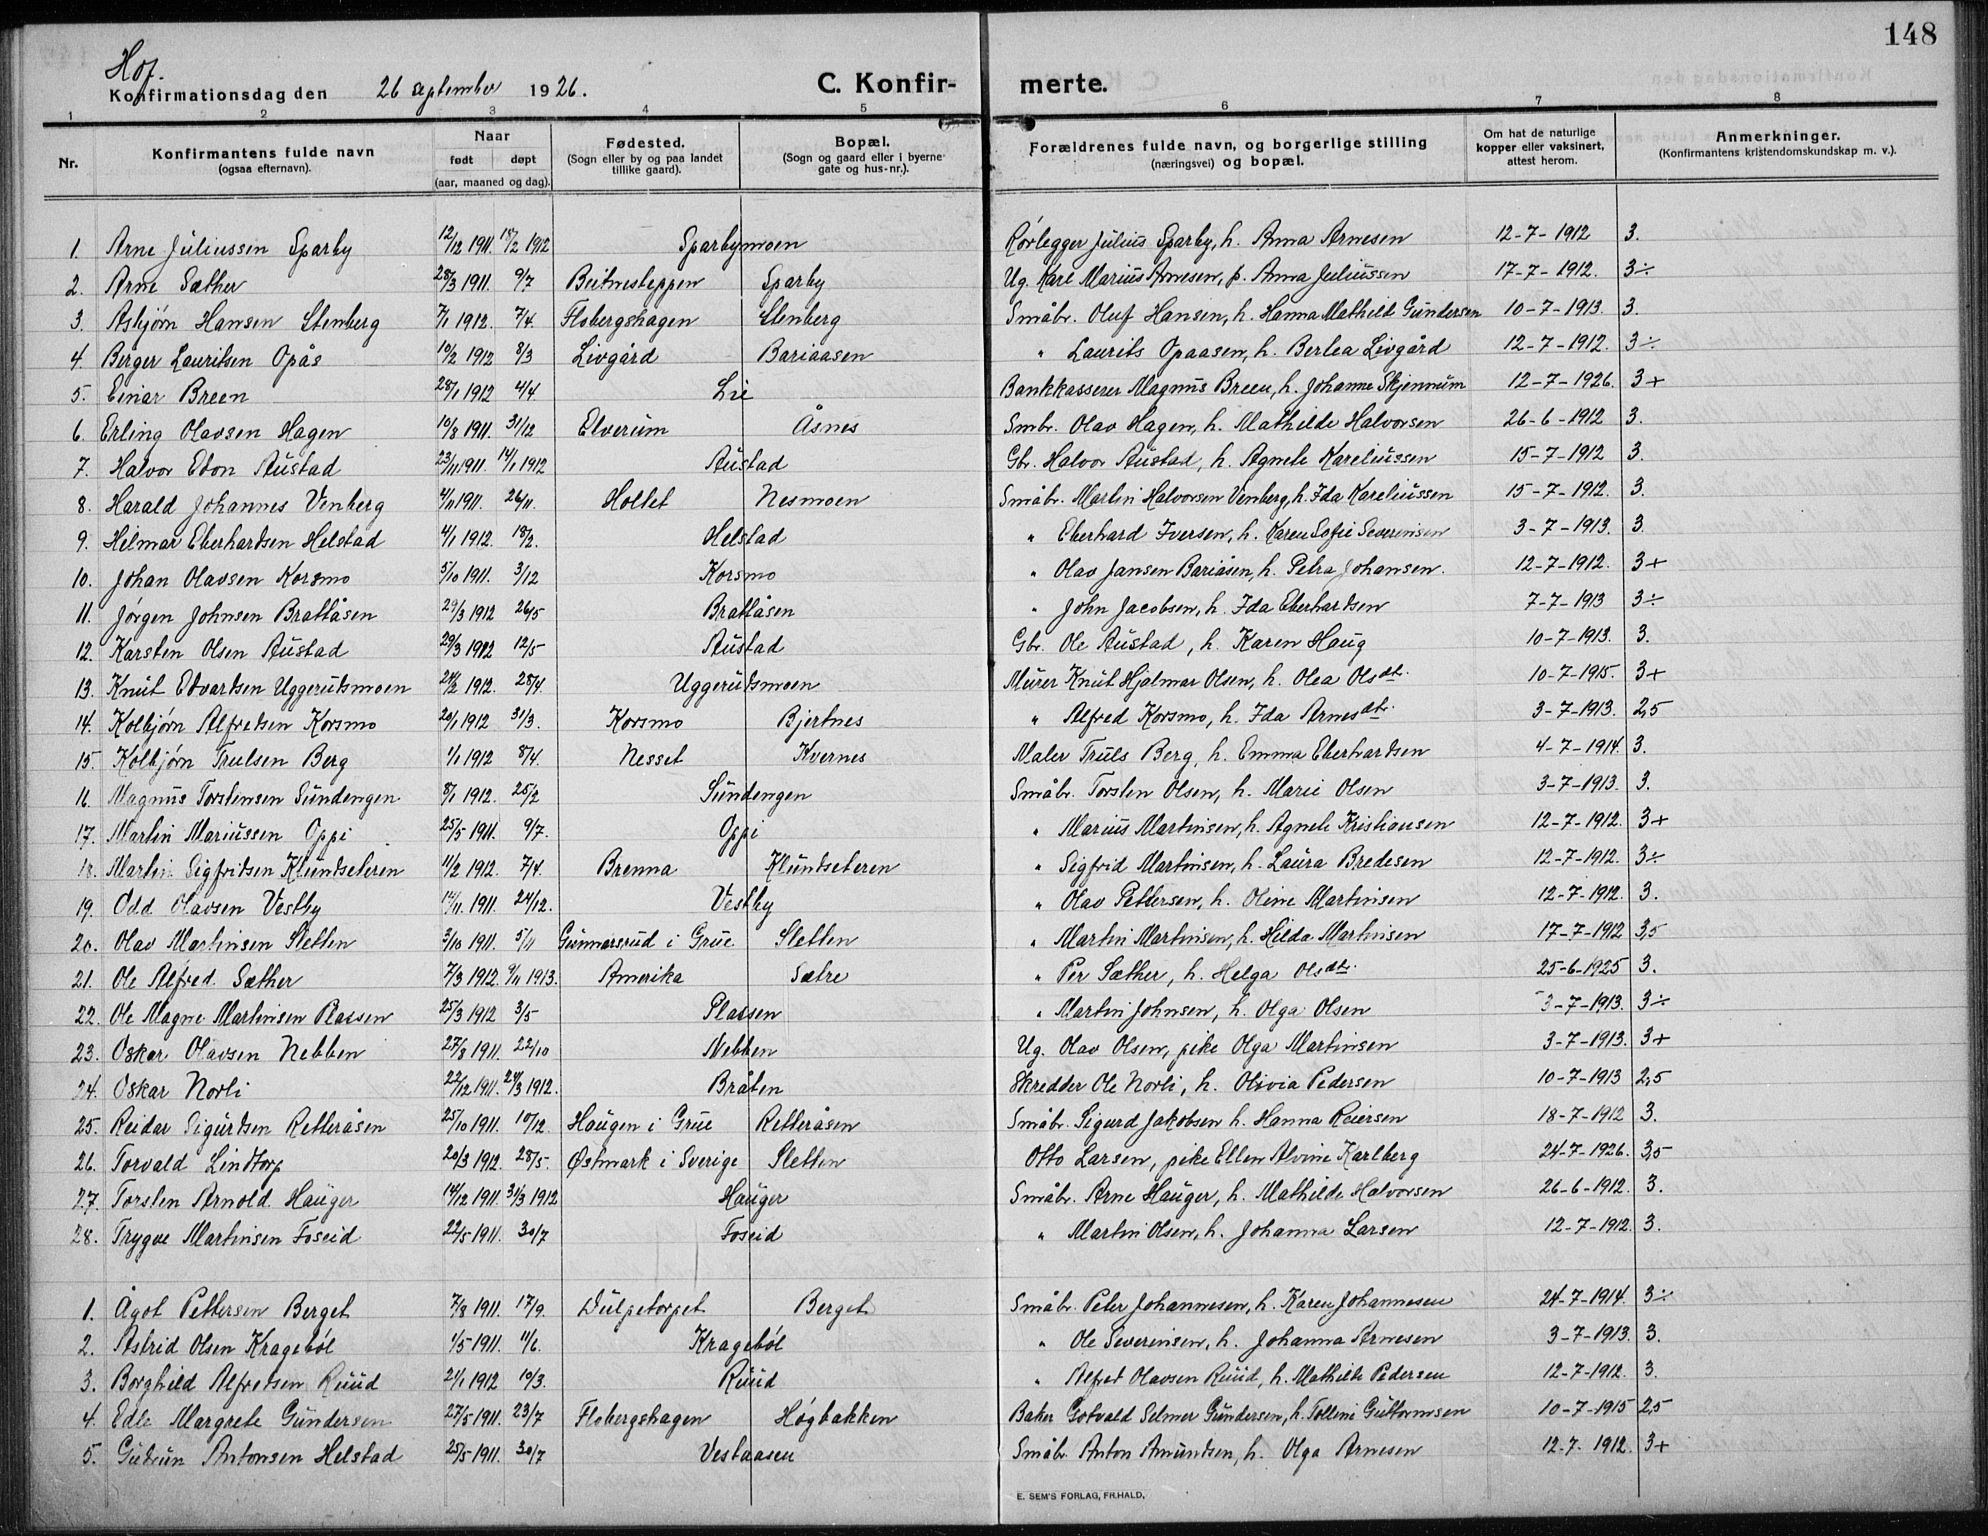 148
Hof.
Konfirmationsdag den 26 september 1926. C. Konfir- merte.
1 2 3 4 5 6 7 8
Nr. Konfirmantens fulde navn (ogsaa efternavn). Naar født døpt (aar, maaned og dag). Fødested. (Sogn eller by og paa landet tillike gaard). Bopæl. (Sogn og gaard eller i byerne gate og hus-nr.). Forældrenes fulde navn, og borgerlige stilling (næringsvei) og bopæl. Om hat de naturlige kopper eller vaksinert, attest herom. Anmerkninger. (Konfirmantens kristendomskundskap m. v.).
1. Arne Juliussen Sparby 12/12 1911. 18/2 1912 Sparbymoen Rørlegger Julius Sparby, h. Anna Arnesen 12-7-1912 3.
2. Arne Sæther 28/3 1911. 9/7 Beitnesteppen Sparby Ug. Karl Marius Arnesen, p. Anna Juliussen 17-7-1912. 3÷
3. Asbjørn Hansen Stenberg 7/1 1912. 7/4. Flobergshagen Stenberg Småbr. Oluf Hansen, h. Hanna Mathilde Gundersen 10-7-1913. 3.
4. Berger Lauritsen Opås 10/2 1912 8/3 Livgård Bariaasen " Laurits Opaasen, h. Berlea Livgård 12-7-1912. 3÷
5. Einar Breen 28/1 1912 4/4. Lie Bankkasserer Magnus Breen, h. Johanne Skjennum 12-7-1926. 3+
6. Erling Olavsen Hagen 10/8 1911. 31/12 Elverum Åsnes Smbr. Olav Hagen, h. Mathilde Halvorsen 26-6-1912 3.
7. Halvor Edon Austad 23/11 1911. 14/1 1912 Austad Gbr. Halvor Austad, h. Agnete Kareliussen 15-7-1912 3.
8. Harald Johannes Venberg 4/11 1911. 26/11. Holtet Nesmoen Småbr. Martin Halvorsen Venberg, h. Ida Kareliussen 15-7-1912. 3.
9. Hilmar Eberhardsen Helstad 4/1 1912. 18/2. Helstad " Eberhard Iversen, h. Karen Sofie Severinsen 3-7-1913. 3.
10. Johan Olavsen Korsmo 5/10 1911. 3/12 Korsmo " Olav Jansen Bariåsen, h. Petra Johansen. 12-7-1912. 3+
11. Jørgen Johnsen Brattåsen 29/3 1912 26/5 Brattåsen " John Jacobsen, h. Ida Eberhardsen 7-7-1913 3÷
12. Karsten Olsen Austad 29/3 1912 12/5 Austad Gbr. Ole Austad, h. Karen Haug 10-7-1913. 3.
13. Knut Edvardsen Uggerudsmoen 24/2 1912. 28/4. Uggerudsmoen Murer Knut Hjalmar Olsen, h. Olea Olsdt. 10-7-1915. 3+
14. Kolbjørn Alfredsen Korsmo 20/1 1912 31/3. Korsmo Bjertnes " Alfred Korsmo, h. Ida Arnesdtr. 3-7-1913. 2,5
15. Kolbjørn Trulsen Berg 1/1 1912 8/4. Nesset Kvernes Maler Truls Berg, h. Emma Eberhardsen 4-7-1914. 3.
16. Magnus Torstensen Sundengen 8/1 1912. 25/2 Sundengen Småbr. Torsten Olsen, h. Marie Olsen 3-7-1913. 3.
17. Martin Mariussen Oppi 25/5 1911. 9/7. Oppi " Marius Martinsen, h. Agnete Kristiansen 12-7-1912. 3+
18. Martin Sigfridsen Klundseteren 11/2 1912. 7/4. Brenna Klundseteren " Sigfrid Martinsen, h. Laura Bredesen 12-7-1912. 3÷
19. Odd Olavsen Vestby 14/11. 1911. 24/12. Vestby " Olav Pettersen, h. Oline Martinsen 12-7-1912. 3.
20. Olav Martinsen Sletten 3/10 1911. 5/11 Gunnarsrud i Grue Sletten " Martin Martinsen, h. Hilda Martinsen 17-7-1912 3,5
21. Ole Alfred Sæther 7/3 1912. 9/11 1913. Amerika Sætre " Per Sæther, h. Helga Olsdt. 25-6-1925 3.
22. Ole Magne Martinsen Plassen 25/3 1912 3/5 Plassen " Martin Johnsen, h. Olga Olsen 3-7-1913. 3÷
23. Oskar Olavsen Nebben 27/8 1911. 22/10 Nebben Ug. Olav Olsen, pike Olga Martinsen 3-7-1913. 3+
24. Oskar Norli 22/12 1911. 24/3 1912. Bråten Skredder Ole Norli, h. Olivia Pedersen 10-7-1913 2,5
25. Reidar Sigurdsen Retteråsen 25/10 1911. 10/12. Haugen i Grue Retteråsen Småbr. Sigurd Jakobsen h. Hanna Reiersen 18-7-1912 3.
26. Torvald Lindtorp 20/3 1912. 28/5. Østmark i Sverige Sletten Otto Larsen, pike Ellen Alvine Karlberg 24-7-1926. 3,5
27. Torsten Arnold Hauger 14/12 1911. 31/3 1912 Hauger Småbr. Arne Hauger, h. Mathilde Halvorsen 26-6-1912. 3.
28. Trygve Martinsen Foseid 22/5 1911. 30/7 Foseid " Martin Olsen, h. Johanna Larsen 12-7-1912. 3.
1. Ågot Pettersen Berget 7/8 1911. 17/9. Dulpetorpet Berget Småbr. Peter Johannesen, h. Karen Johannesen 24-7-1914. 3÷
2. Astrid Olsen Kragebøl 1/5 1911. 11/6. Kragebøl " Ole Severinsen, h. Johanna Arnesen 3-7-1913. 3.
3. Borghild Alfredsen Ruud 21/1 1912 10/3. Ruud " Alfred Olavsen Ruud, h. Mathilde Pedersen 12-7-1912. 3.
4. Edle Margrete Gundersen 27/5 1911. 23/7 Flobergshagen Høgbakken Baker Gotvald Selmer Gundersen, h. Tolline Guttormsen 10-7-1915 2,5
5. Gudrun Antonsen Helstad 25/5 1911. 30/7 Vestaasen Småbr. Anton Amundsen, h. Olga Arnesen 12-7-1912. 3+
E. SEM'S FORLAG, FR.HALD.